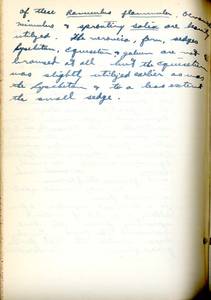 of these Ranunculus flammula,
mimulus & sprouting salix are heavily
utilized. The veronica, fern, sedges
equisetum & galium are not
browsed at all but the equisetum
was slightly utilized earlier as was
the & to a less extent
the small sedge.